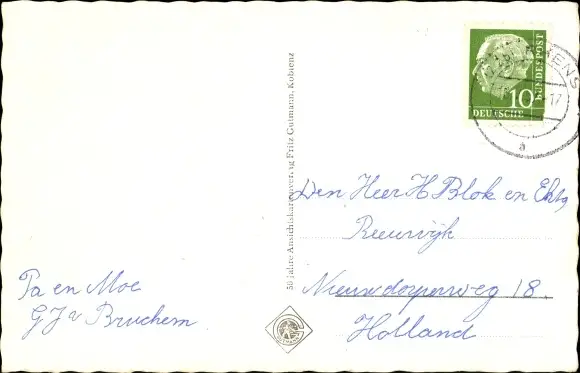 Pa en Moe
G J v Bruchem
50 Jahre Ansichtskartenverlag Fritz Gutmann, Koblenz
10
DEUTSCHE
BUNDESPOST
-17
a
Den Heer H Blok en Echtg
Reeuwijk
Nieuwdorperweg 18
Holland